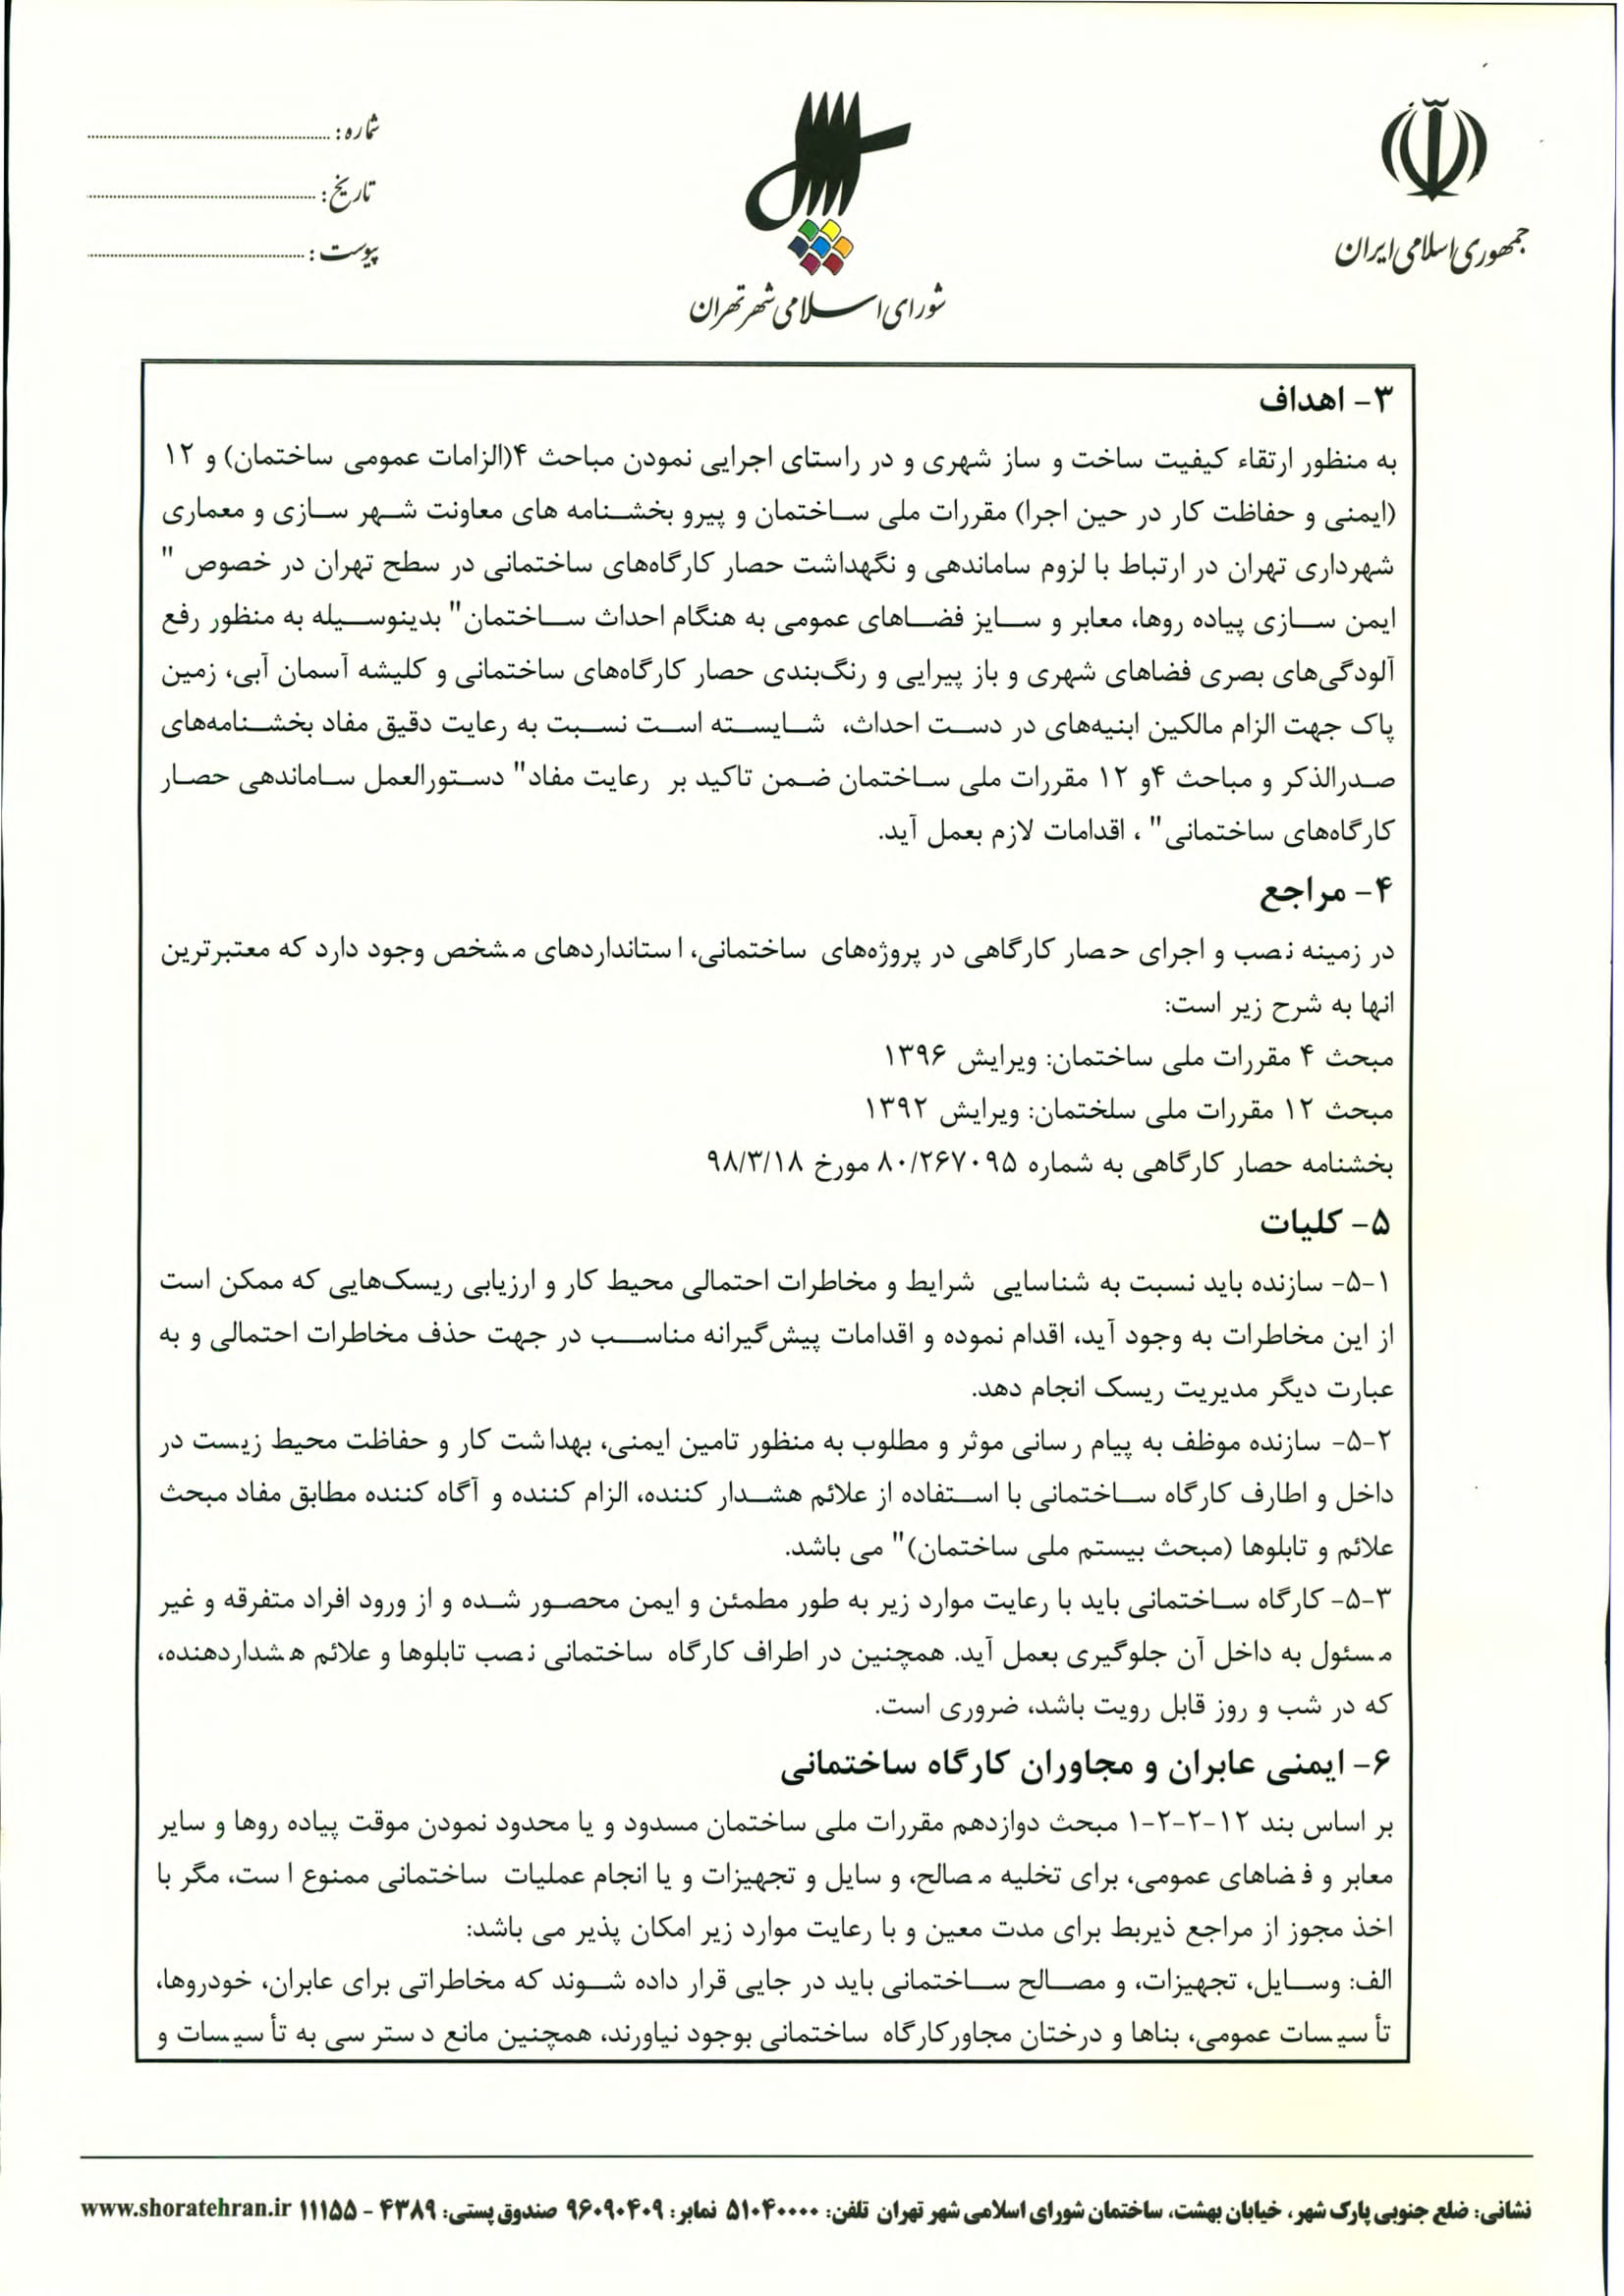 جمهوری اسلامی ایران
شورای اسلامی شهر تهران
شماره :
تاریخ :
پیوست :
۳- اهداف
به منظور ارتقاء کیفیت ساخت و ساز شهری و در راستای اجرایی نمودن مباحث ۴(الزامات عمومی ساختمان) و ۱۲
(ایمنی و حفاظت کار در حین اجرا) مقررات ملی ساختمان و پیرو بخشنامه های معاونت شهر سازی و معماری
شهرداری تهران در ارتباط با لزوم ساماندهی و نگهداشت حصار کارگاه‌های ساختمانی در سطح تهران در خصوص "
ایمن سازی پیاده روها، معابر و سایز فضاهای عمومی به هنگام احداث ساختمان" بدینوسیله به منظور رفع
آلودگی‌های بصری فضاهای شهری و باز پیرایی و رنگ‌بندی حصار کارگاه‌های ساختمانی و کلیشه آسمان آبی، زمین
پاک جهت الزام مالکین ابنیه‌های در دست احداث، شایسته است نسبت به رعایت دقیق مفاد بخشنامه‌های
صدرالذکر و مباحث ۴و ۱۲ مقررات ملی ساختمان ضمن تاکید بر رعایت مفاد" دستورالعمل ساماندهی حصار
کارگاه‌های ساختمانی" ، اقدامات لازم بعمل آید.
۴- مراجع
در زمینه نصب و اجرای حصار کارگاهی در پروژه‌های ساختمانی، استانداردهای مشخص وجود دارد که معتبرترین
انها به شرح زیر است:
مبحث ۴ مقررات ملی ساختمان: ویرایش ۱۳۹۶
مبحث ۱۲ مقررات ملی سلختمان: ویرایش ۱۳۹۲
بخشنامه حصار کارگاهی به شماره ۸۰/۲۶۷۰۹۵ مورخ ۹۸/۳/۱۸
۵- کلیات
۵-۱- سازنده باید نسبت به شناسایی شرایط و مخاطرات احتمالی محیط کار و ارزیابی ریسک‌هایی که ممکن است
از این مخاطرات به وجود آید، اقدام نموده و اقدامات پیش‌گیرانه مناسب در جهت حذف مخاطرات احتمالی و به
عبارت دیگر مدیریت ریسک انجام دهد.
۵-۲- سازنده موظف به پیام رسانی موثر و مطلوب به منظور تامین ایمنی، بهداشت کار و حفاظت محیط زیست در
داخل و اطارف کارگاه ساختمانی با استفاده از علائم هشدار کننده، الزام کننده و آگاه کننده مطابق مفاد مبحث
علائم و تابلوها (مبحث بیستم ملی ساختمان)" می باشد.
۵-۳- کارگاه ساختمانی باید با رعایت موارد زیر به طور مطمئن و ایمن محصور شده و از ورود افراد متفرقه و غیر
مسئول به داخل آن جلوگیری بعمل آید. همچنین در اطراف کارگاه ساختمانی نصب تابلوها و علائم هشداردهنده،
که در شب و روز قابل رویت باشد، ضروری است.
۶- ایمنی عابران و مجاوران کارگاه ساختمانی
بر اساس بند ۱۲-۲-۲-۱ مبحث دوازدهم مقررات ملی ساختمان مسدود و یا محدود نمودن موقت پیاده روها و سایر
معابر و فضاهای عمومی، برای تخلیه مصالح، و سایل و تجهیزات و یا انجام عملیات ساختمانی ممنوع است، مگر با
اخذ مجوز از مراجع ذیربط برای مدت معین و با رعایت موارد زیر امکان پذیر می باشد:
الف: وسایل، تجهیزات، و مصالح ساختمانی باید در جایی قرار داده شوند که مخاطراتی برای عابران، خودروها،
تأسیسات عمومی، بناها و درختان مجاورکارگاه ساختمانی بوجود نیاورند، همچنین مانع دسترسی به تأسیسات و
نشانی: ضلع جنوبی پارک شهر، خیابان بهشت، ساختمان شورای اسلامی شهر تهران تلفن: ۵۱۰۴۰۰۰۰ نمابر: ۹۶۰۹۰۴۰۹ صندوق پستی: ۴۳۸۹ - ۱۱۱۵۵ www.shoratehran.ir